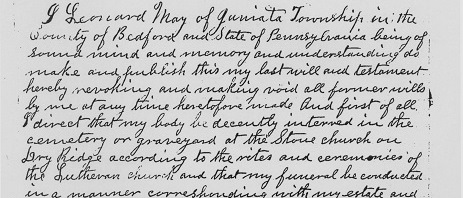 I Leonard May of Juniata Township in the
County of Bedford and State of Pennsylvania being of
sound mind and memory and understanding do
make and publish this my last will and testament
hereby revoking and making void all former wills
by me at any time heretofore made And first of all
I direct that my body be decently interred in the
cemetery or graveyard at the Stone church on
Dry Ridge according to the rites and ceremonies of
the Lutheran church and that my funeral be conducted
in a manner corresponding with my estate and